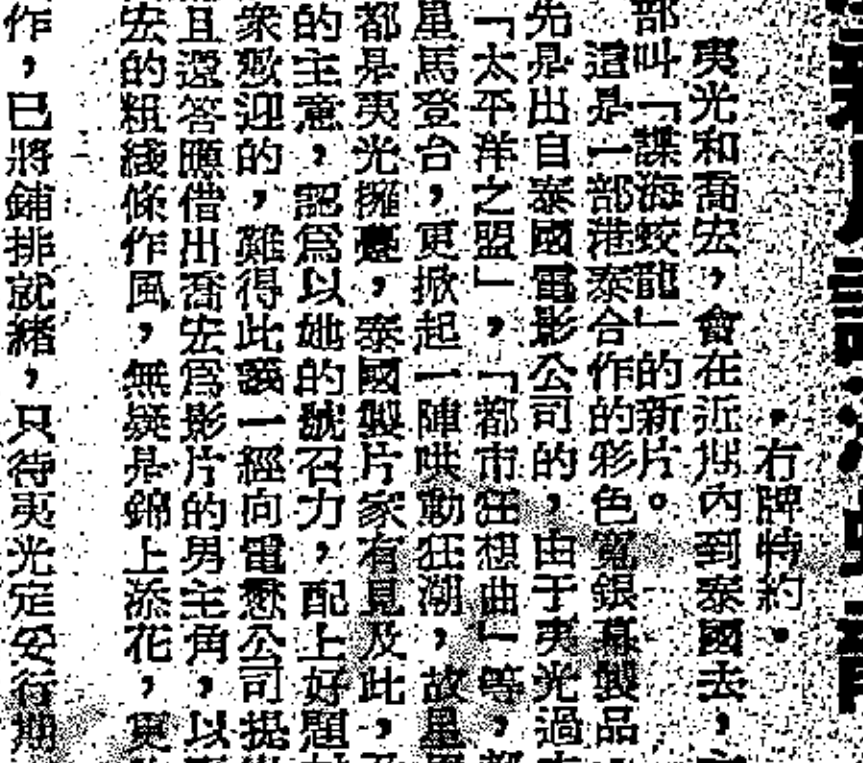 ，右牌特約。
夷光和喬宏，會在近期內到泰國去，
部叫「諜海蛟龍」的新片。
這是一部港泰合作的彩色寬銀幕製品
先是出自泰國電影公司的，由于夷光過
「太平洋之盟」，「都市狂想曲」等，都
星馬登台，更掀起一陣哄動狂潮，故星
都是夷光擁躉，泰國製片家有見及此，
的主意，認爲以她的號召力，配上好題
衆歡迎的，難得此議一經向電懋公司提
且還答應借出喬宏爲影片的男主角，以
宏的粗綫條作風，無疑是錦上添花，更
作，已將鋪排就緒，只待夷光定妥行期